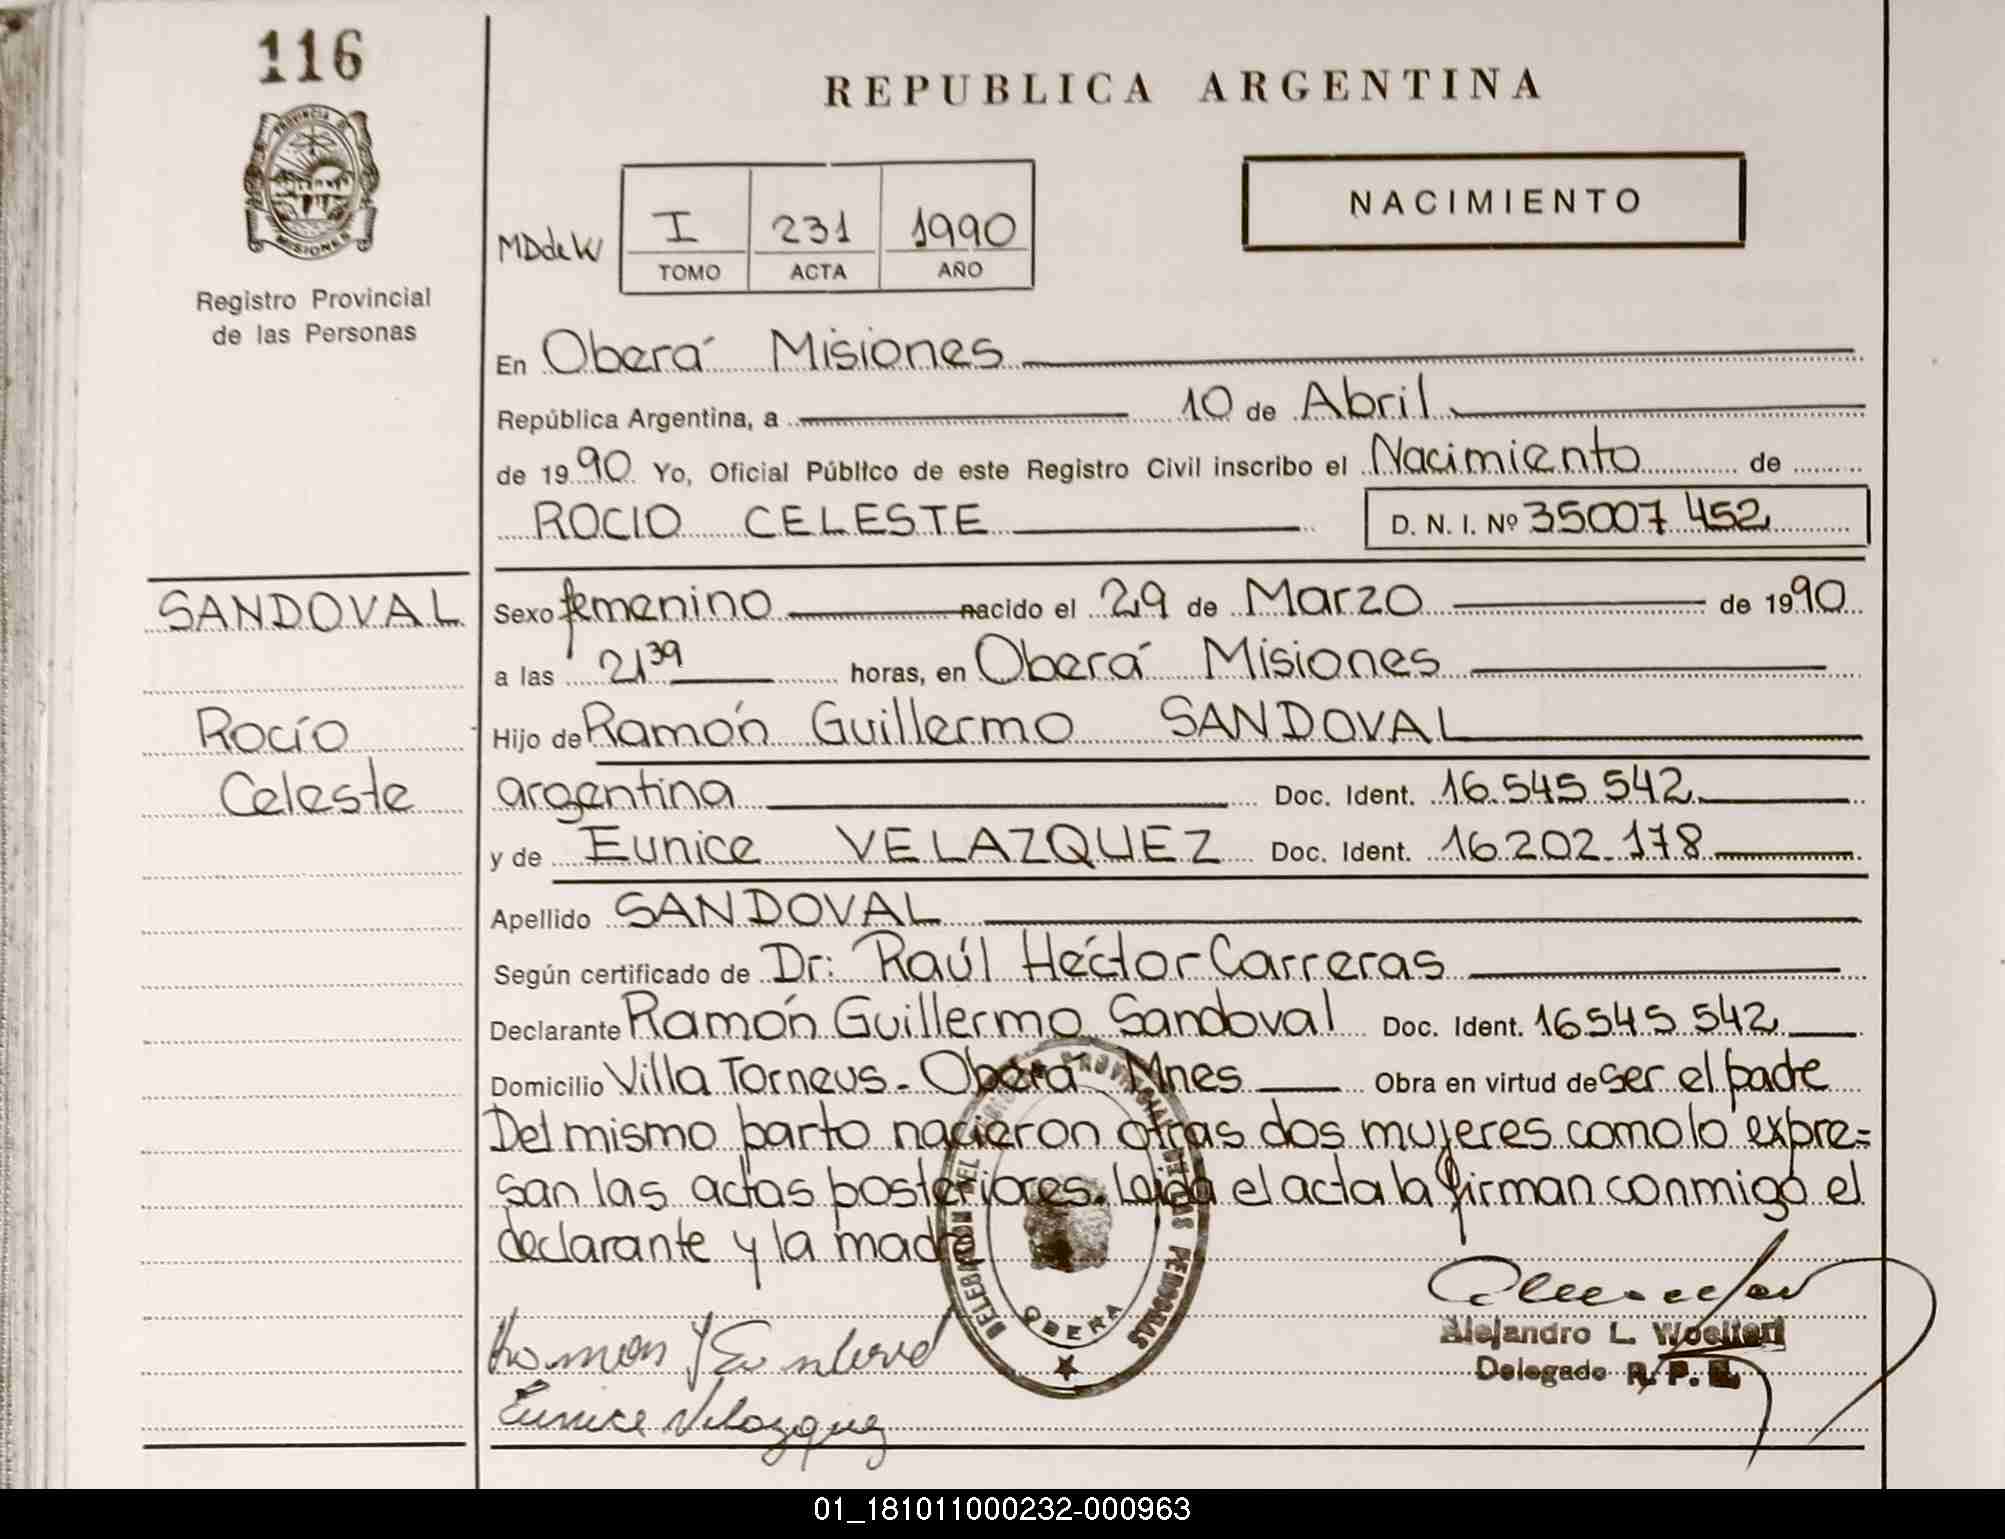 116
REPUBLICA ARGENTINA
PROVINCIA D
MISIONES
Registro Provincial
de las Personas
NACIMIENTO
MDdeW
I 231 1990
TOMO ACTA AÑO
En Oberá Misiones
República Argentina, a 10 de Abril
de 1990 Yo, Oficial Público de este Registro Civil inscribo el Nacimiento de
ROCIO CELESTE D. N. I. Nº 35007 452
SANDOVAL
Rocío
Celeste
Sexo femenino nacido el 29 de Marzo de 1990
a las 21 39 horas, en Oberá Misiones
Hijo de Ramón Guillermo SANDOVAL
argentina Doc. Ident. 16.545 542
y de Eunice VELAZQUEZ Doc. Ident. 16.202.178
Apellido SANDOVAL
Según certificado de Dr: Raúl Héctor Carreras
Declarante Ramón Guillermo Sandoval Doc. Ident. 16545 542
Domicilio Villa Torneus - Oberá Mnes Obra en virtud de ser el padre
Del mismo parto nacieron otras dos mujeres como lo expre=
san las actas posteriores. Leida el acta la firman conmigo el
declarante y la madre
DELEGACION DEL PROVINCIAL DE LAS PERSONAS
OBERA
Ramon G Sandoval
Eunice Velazquez
Alejandro L.
Delegado R. P.
01_181011000232-000963